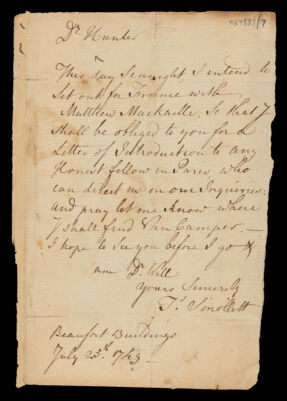 Dr. Hunter
This day Se'night I intend to
Set out for France with
Matthew Mackaille, so that I
shall be obliged to you for a
Letter of Introduction to any
Honest fellow in Paris, who
can direct us in our Inquiries;
and pray let me know where
I shall find Van Camper. —
I hope to see you before I go &
am Dr. Will
Yours Sincerely
Ts. Smollett
Beaufort Buildings
July 25th. 1749 —